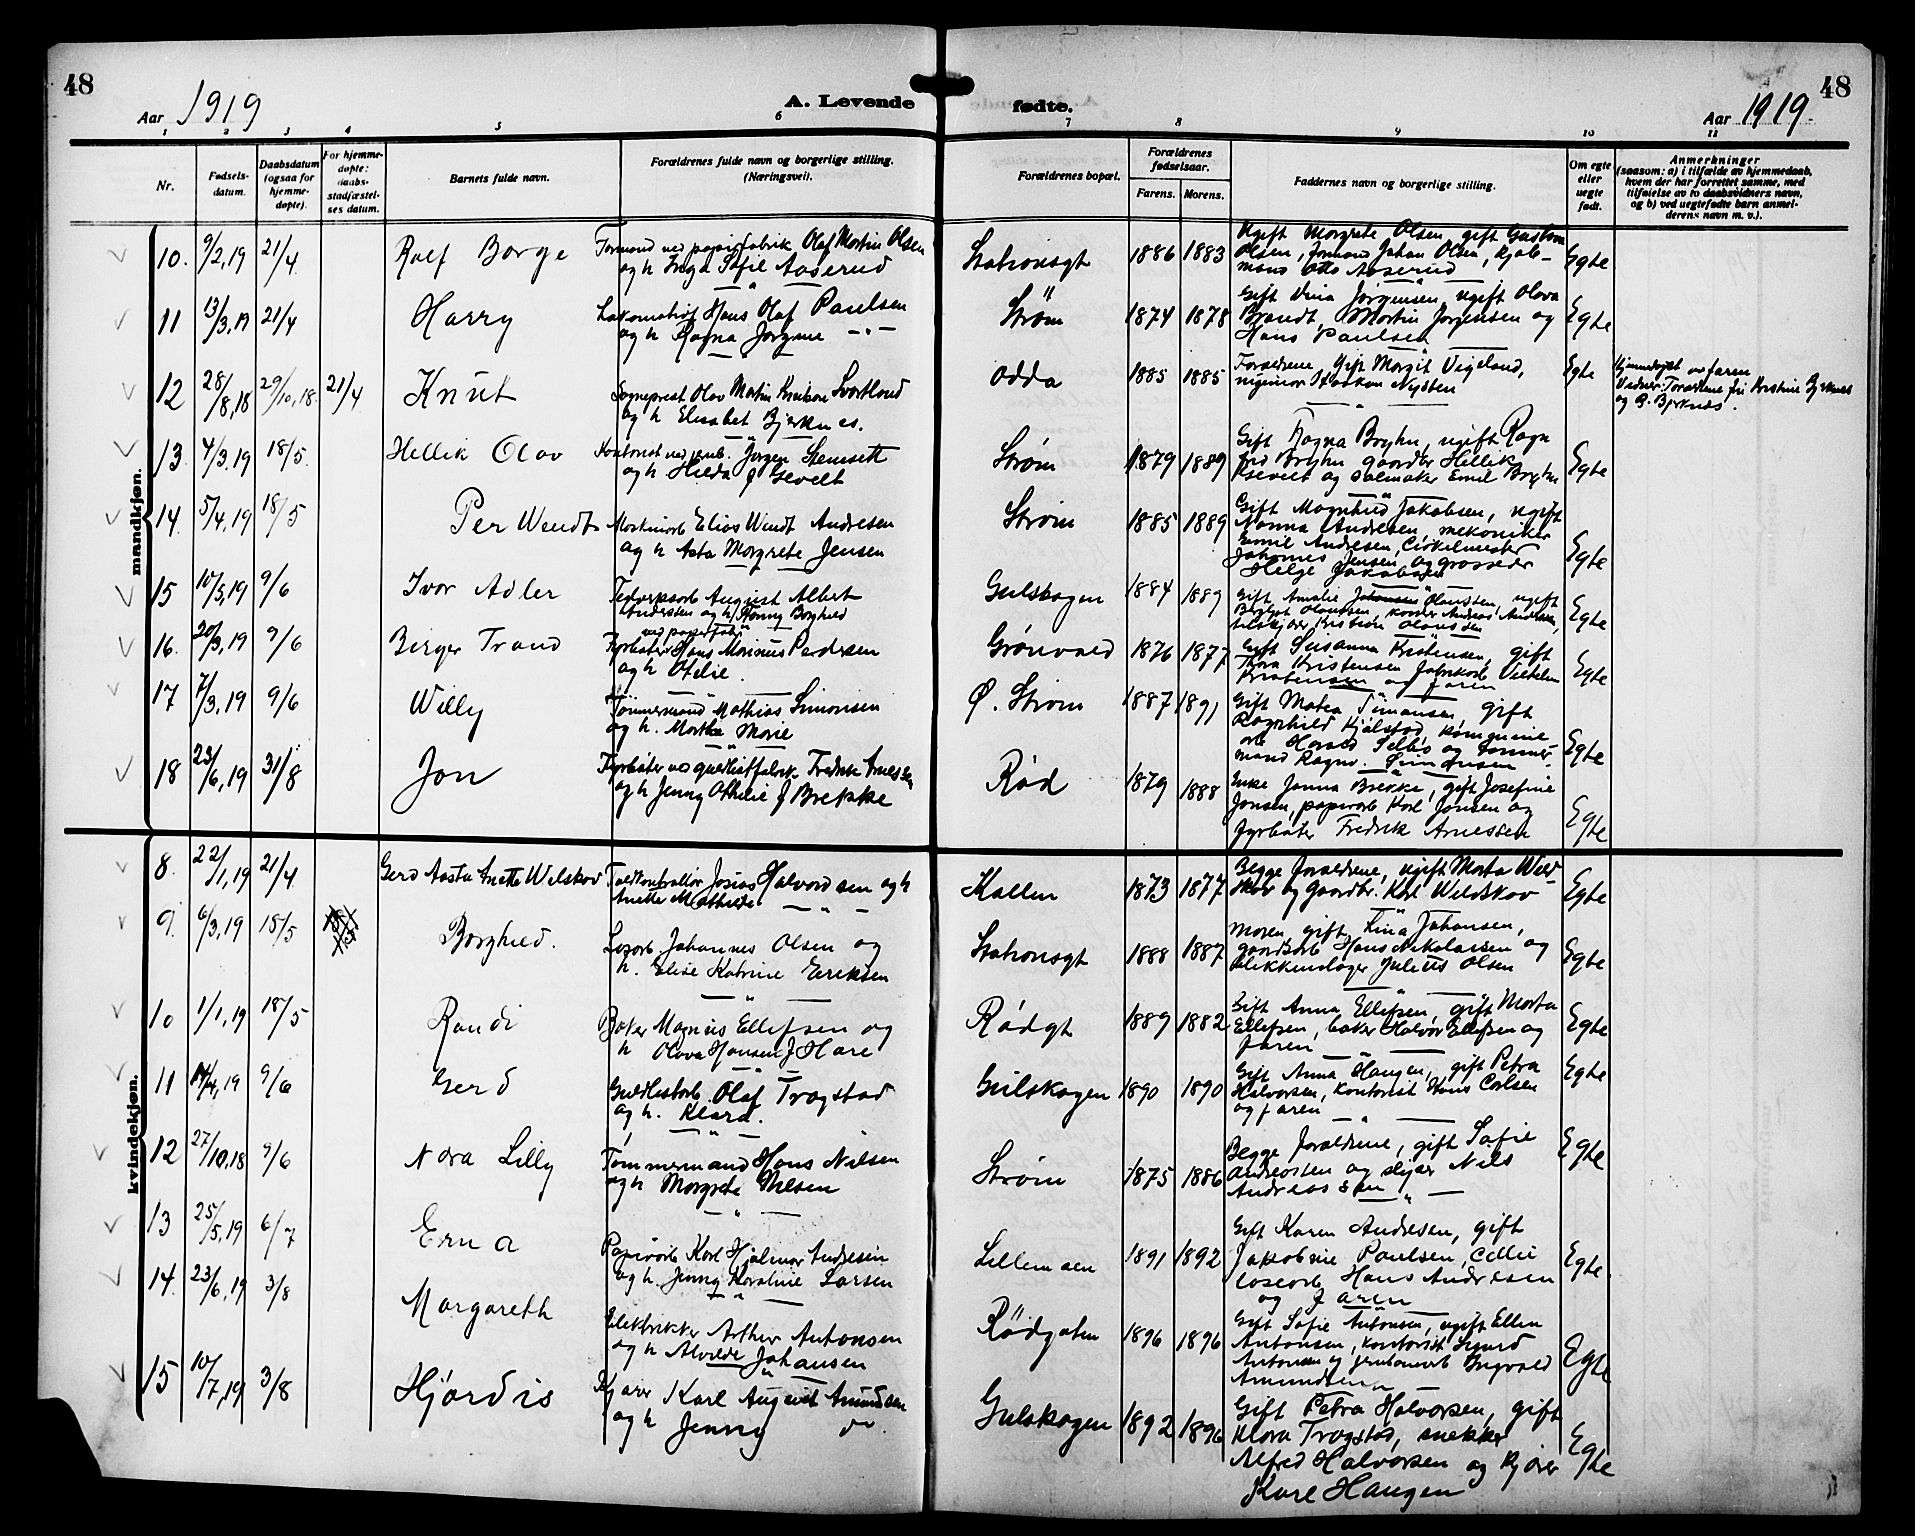 48
Aar 1919
A. Levende
fødte.
Aar 1919.
48
1 2 3 4 5 6 7 8 9 10 11
Nr.
Fødsels-
datum.
Daabsdatum
(ogsaa for
hjemme-
døpte).
For hjemme-
døpte:
daabs-
stadfæstel-
ses datum.
Barnets fulde navn.
Forældrenes fulde navn og borgerlige stilling.
(Næringsvei).
Forældrenes bopæl.
Forældrenes
fødselsaar.
Farens. Morens.
Faddernes navn og borgerlige stilling.
Om egte
eller
uegte
født.
Anmerkninger
(saasom: a) i tilfælde av hjemmedaab,
hvem der har forrettet samme, med
tilføielse av to daabsvidners navn,
og b) ved uegtefødte barn anmel-
derens navn m. v.).
mandkjøn.
10. 9/2,19 21/4 Rolf Borge
Formand ved papirfabrik Olaf Martin Olsen
og h Inga Sofie Aaserud
Stationsgt 1886 1883
Ugift Margrete Olsen, gift
Olsen, formand Johan Olsen,
Otto Aaserud
Egte
11 13/3,19 21/4 Harry
Hans Olaf Paulsen
og h Ragna Jørgine
Strøm 1874 1878
Gift Vina Jørgensen, ugift Olava
Brandt, Martin Jørgensen og
Hans Paulsen
Egte
12 28/8,18 29/10,18 21/4 Knut
Sogneprest Olav Martin Svortlund
og h Elisabet Bjerknes.
Odda 1885 1885
Forældrene, Gift Margit Vigeland,
Haakon Nysten
Egte
Hjemmedøpt av faren
Vidner: Forældrene, frk Kristine Bjerknes
og Bjerknes.
13. 4/3,19 18/5. Hellik Olav
Kontorist ved jernb. Jørgen Stensett
og h Hilda f Gsevelt
Strøm 1879 1889
Gift Ragna Bryhn, ugift Ragn
frid Bryhn, gaardbr Hellik
og salmaker Emil Bryhn
Egte
14. 5/4,19 18/5 Per Wendt
Elias Wendt Andresen
og h Asta Margrete Jensen
Strøm 1885 1889
Gift Magnhild Jakobsen, ugift
Nanna Andresen, mekaniker
Emil Andresen, Cirkelmester
Johannes Jensen og grosserer
Helge Jakobsen
Egte
15 10/3,19 9/6 Ivar Adler
August Albert
Andersen og h Fanny Borghild
Gulskogen 1884 1889
Gift Amalie Olaussen, ugift
Borghild Olaussen, Andreas Andersen,
Kristian Olaussen
Egte
16. 20/3,19 9/6 Birger Trand
ved papirfabr
Fyrbøter Hans Marinius Pedersen
og h Otelie.
Grönvold 1876 1877
Gift Susanna Kristensen, gift
Thora Kristensen, fabrikarb Vilhelm
Kristensen og faren
Egte
17 7/3,19 9/6 Willy
Tømmermand Mathias Simonsen
og h. Marthe Marie
Ø. Strøm 1887 1891
Gift Matea Simonsen, gift
Ragnhild Hjälstad, kommune
arb Harald Selbo og tømmer-
mand Ragnv. Simonsen
Egte
18 23/6,19 31/8 Jon
Fyrbøter ved guldlistfabrik Fredrik Arnessen
og h Jenny Othilie f Brekke
Rød 1879 1888
Enke Janna Brekke, gift Josefine
Jonsen, papirarb Karl Jonsen og
fyrbøter Fredrik Arnessen
Egte
kvindekjøn.
8. 22/1,19 21/4 Gerd Aasta Anette Welskov
Toldkontrollør Josias Halvordsen og h
Anette Mathilde
Kallen 1873 1877
Begge forældrene, ugift Marta Weld-
skov og Gaardbr. Karl Weldskov
Egte
9. 6/3,19 18/5 Borghild.
Losarb Johannes Olsen og
h. Elise Katrine Eriksen
Stationsgt 1888 1887
Moren, gift Lina Johansen,
gaardsarb Hans Nikolaisen og
blikkenslager Julius Olsen
Egte
10 1/1,19 18/5 Randi
Baker Magnus Ellefsen og
h Olava Hansen f Hare
Rødgt 1889 1882
Gift Anna Ellefsen, gift Marta
Ellefsen, baker Halvor Ellefsen og
faren
Egte
11 14/4,19 9/6 Gerd
Guldlistarb. Olaf Tragstad
og h. Klara.
Gulskogen 1890 1890
Gift Anna Haugen, gift Petra
Halvorsen, kontorist Hans Carlsen
og faren
Egte
12 27/10,18 9/6 Nora Lilly
Tømmermand Hans Nilsen
og h Margrete Nilsen
Strøm 1875 1886
Begge forældrene, gift Sofie
Andreassen og sliper Nils
Andreassen
Egte
13 25/5,19 6/7 Erna
Papirarb Karl Hjalmar Andresen
og h. Jenny Karoline Larsen
Lillemoen 1891 1892
Gift Karen Andresen, gift
Jakobine Paulsen, cellu
losearb Hans Andresen
og faren
Egte
14. 23/6,19 3/8 Margareth
Elektriker Arthur Antonsen
og h Alvilde Johansen
Rødgaten 1896 1896
Gift Sofie Antonsen, ugift Ellen
Antonsen, kontorist Sigurd
Antonsen og Ingvald
Amundsen
Egte
15 10/7,19 3/8 Hjørdis
Kjører Karl August Amundsen
og h Jenny do
Gulskogen 1892 1896
Gift Petra Halvorsen, gift
Klara Tragstad, snekker
Alfred Halvorsen og kjører
Kare Haugen
Egte